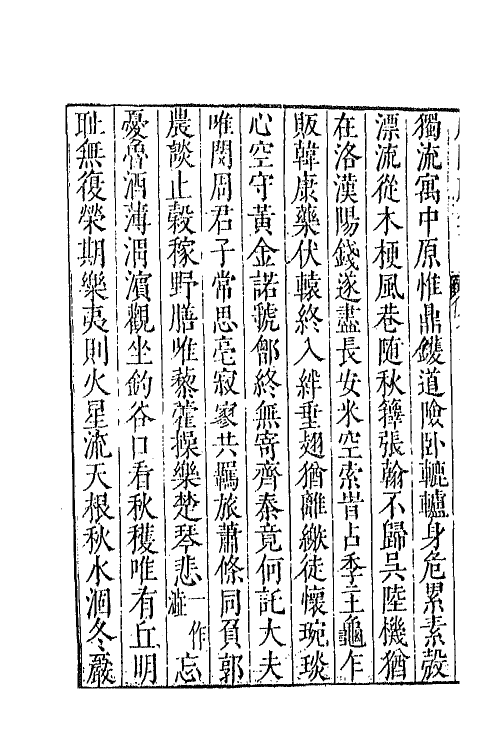 獨流寓中原惟鼎鑊道險卧轆轤身危累素殼
漂流從木梗風巷随秋籜張翰不歸吳陸機猶
在洛漢陽錢遂盡長安米空索昔占季主龜乍
販韓康藥伏轅終入絆垂翅猶離繳徒懷琬琰
心空守黃金諾虢鄶終無寄齊秦竟何託大夫
唯閔周君子常思亳寂寥共羈旅蕭條同負郭
農談止穀稼野膳唯藜藿操樂楚琴悲一作澁忘
憂魯酒薄渭濱觀坐釣谷口看秋穫唯有丘明
耻無復榮期樂夷則火星流天根秋水涸冬嚴